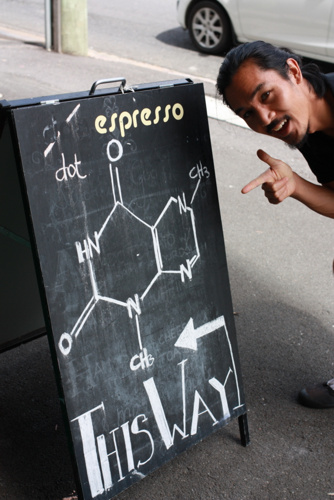 espresso
dot
O
CH3
N
HN
N
N
O
CH3
THIS WAY